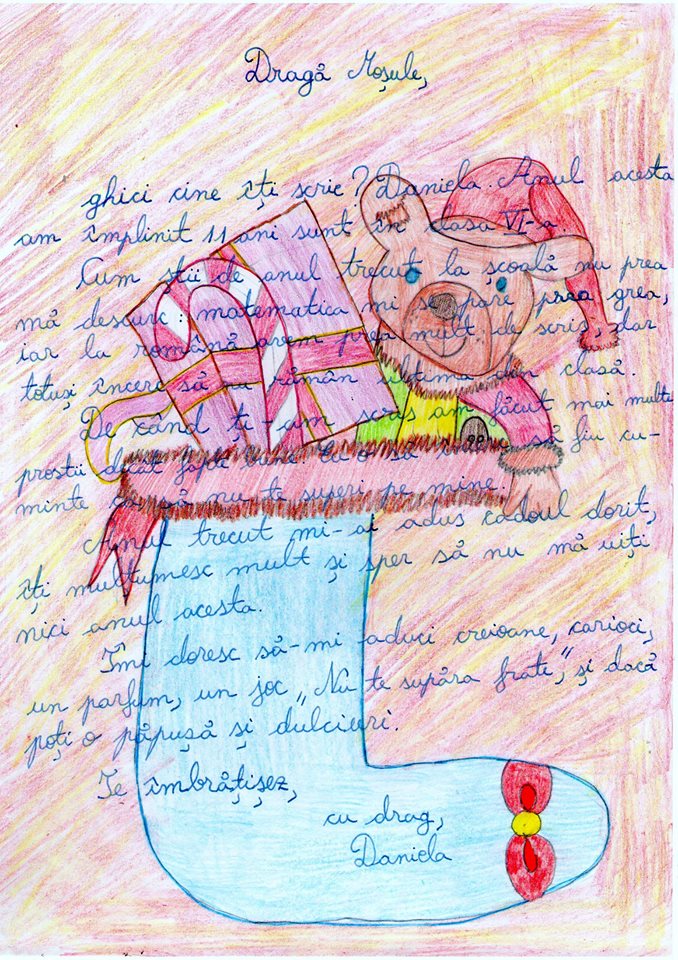 Dragă Moșule,
ghici cine îți scrie? Daniela. Anul acesta
am împlinit 11 ani sunt în clasa VI-a.
Cum știi de anul trecut la școală nu prea
mă descurc: matematica mi se pare prea grea,
iar la română avem prea mult de scris, dar
totuși încerc să nu rămân ultima din clasă.
De când ți-am scris am făcut mai multe
prostii decât fapte bune. Eu o să să fiu cu-
minte ca să nu te superi pe mine.
Anul trecut mi-ai adus cadoul dorit,
îți mulțumesc mult și sper să nu mă uiți
nici anul acesta.
Îmi doresc să-mi aduci creioane, carioci,
un parfum, un joc „Nu te supăra frate”, și dacă
poți o păpușă și dulciuri.
Te îmbrățișez,
cu drag,
Daniela